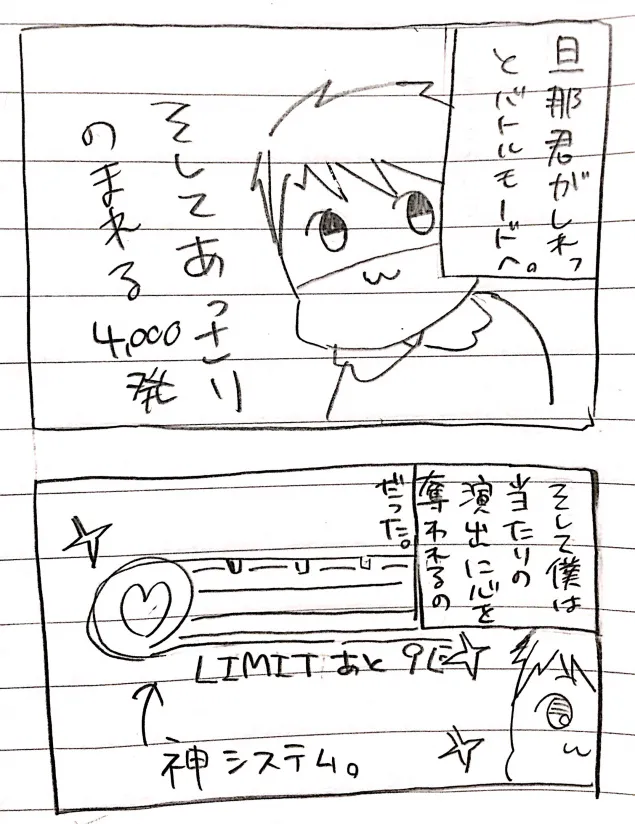 旦那君がしれっ
とバトルモードへ。
そしてあっさり
のまれる
4,000
発
そして僕は
当たりの
演出に心を
奪われるの
だった。
LIMITあと9に
神システム。